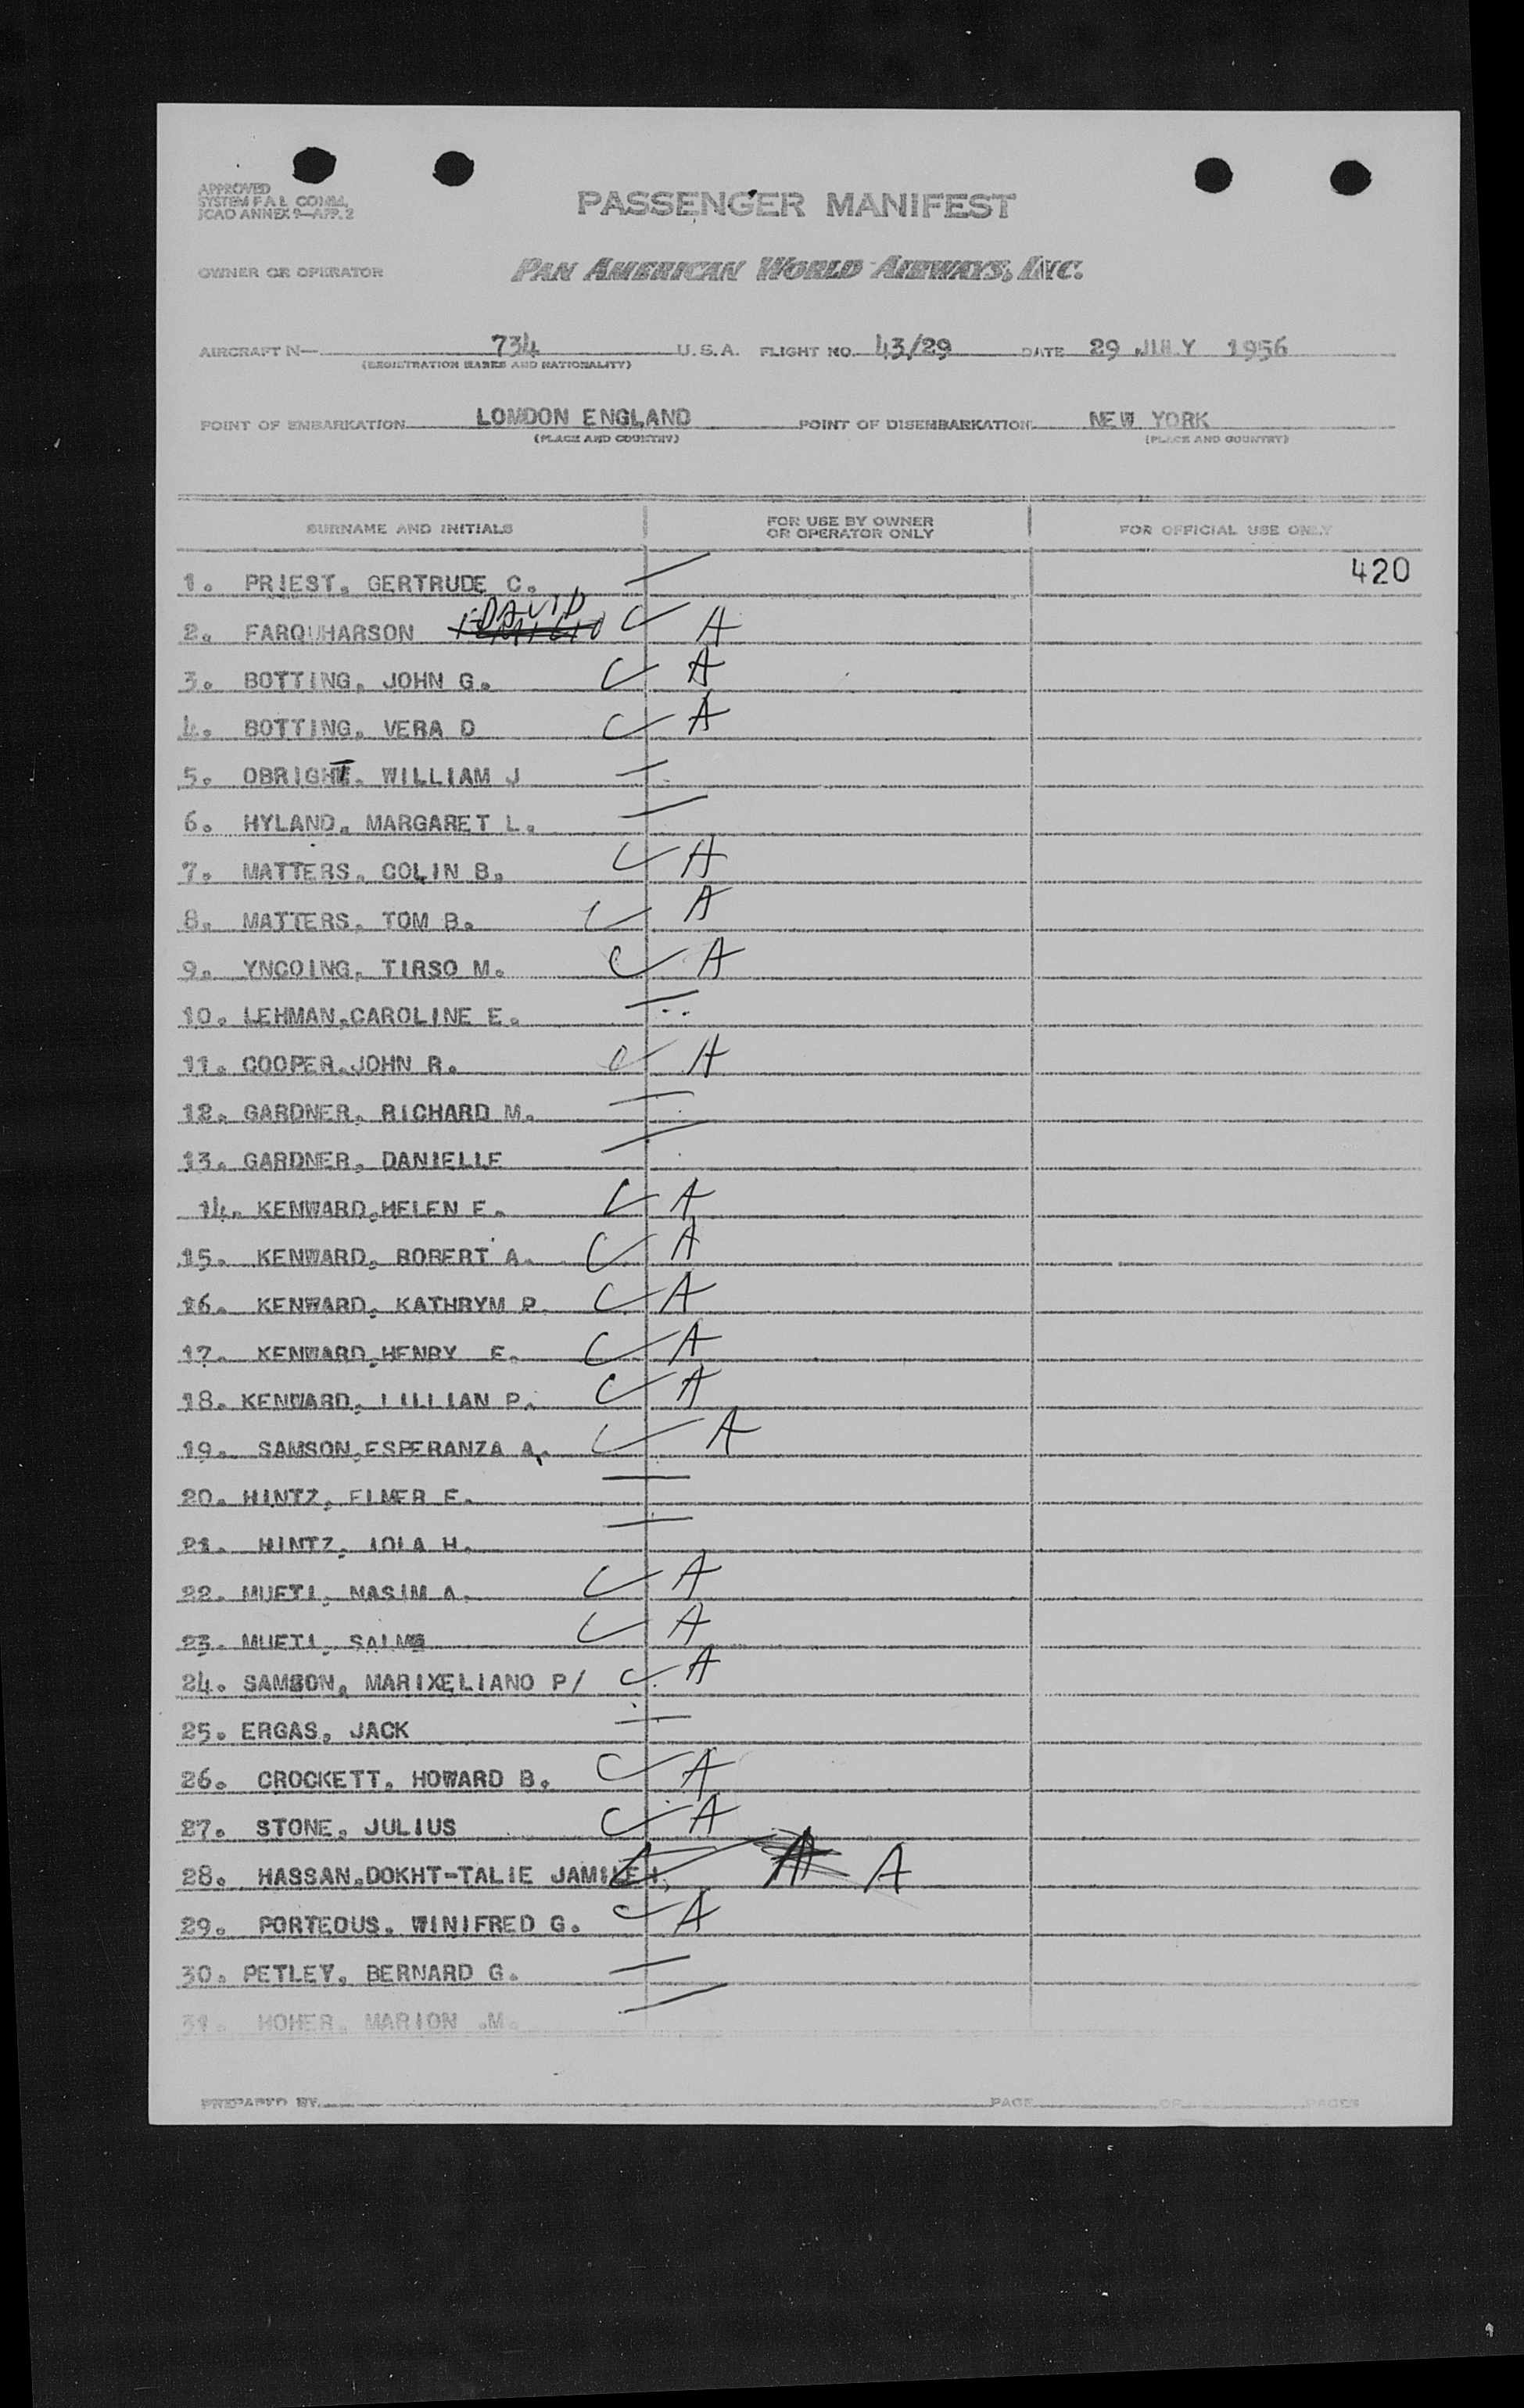 APPROVED
SYSTEM F.A.L. COMM.
ICAO ANNEX 9—APP. 2
PASSENGER MANIFEST
OWNER OR OPERATOR PAN AMERICAN WORLD AIRWAYS, INC.
AIRCRAFT N— 734 U.S.A. FLIGHT NO. 43/29 DATE 29 JULY 1956
(REGISTRATION MARKS AND NATIONALITY)
POINT OF EMBARKATION LOMDON ENGLAND POINT OF DISEMBARKATION NEW YORK
(PLACE AND COUNTRY) (PLACE AND COUNTRY)
SURNAME AND INITIALS FOR USE BY OWNER OR OPERATOR ONLY FOR OFFICIAL USE ONLY
420
1. PRIEST, GERTRUDE C.
2. FARQUHARSON DAVID A
3. BOTTING, JOHN G. A
4. BOTTING, VERA D A
5. OBRIGHT, WILLIAM J
6. HYLAND, MARGARET L.
7. MATTERS, COLIN B. A
8. MATTERS, TOM B. A
9. YNCOING, TIRSO M. A
10. LEHMAN,CAROLINE E.
11. COOPER,JOHN R. A
12. GARDNER, RICHARD M.
13. GARDNER, DANIELLE
14. KENWARD,HELEN E. A
15. KENWARD, ROBERT A. A
16. KENWARD, KATHRYM P. A
17. KENWARD,HENRY E. A
18. KENWARD, LILLIAN P. A
19. SAMSON,ESPERANZA A. A
20. HINTZ, ELMER E.
21. HINTZ, IOLA H.
22. MUFTI, NASIM A. A
23. MUFTI, SALMA A
24. SAMSON, MARIXELIANO P/ A
25. ERGAS, JACK
26. CROCKETT, HOWARD B. A
27. STONE, JULIUS A
28. HASSAN,DOKHT-TALIE JAMILEH, A A
29. PORTEOUS, WINIFRED G. A
30. PETLEY, BERNARD G.
31. HOHER, MARION .M.
PREPARED BY PAGE OF PAGES